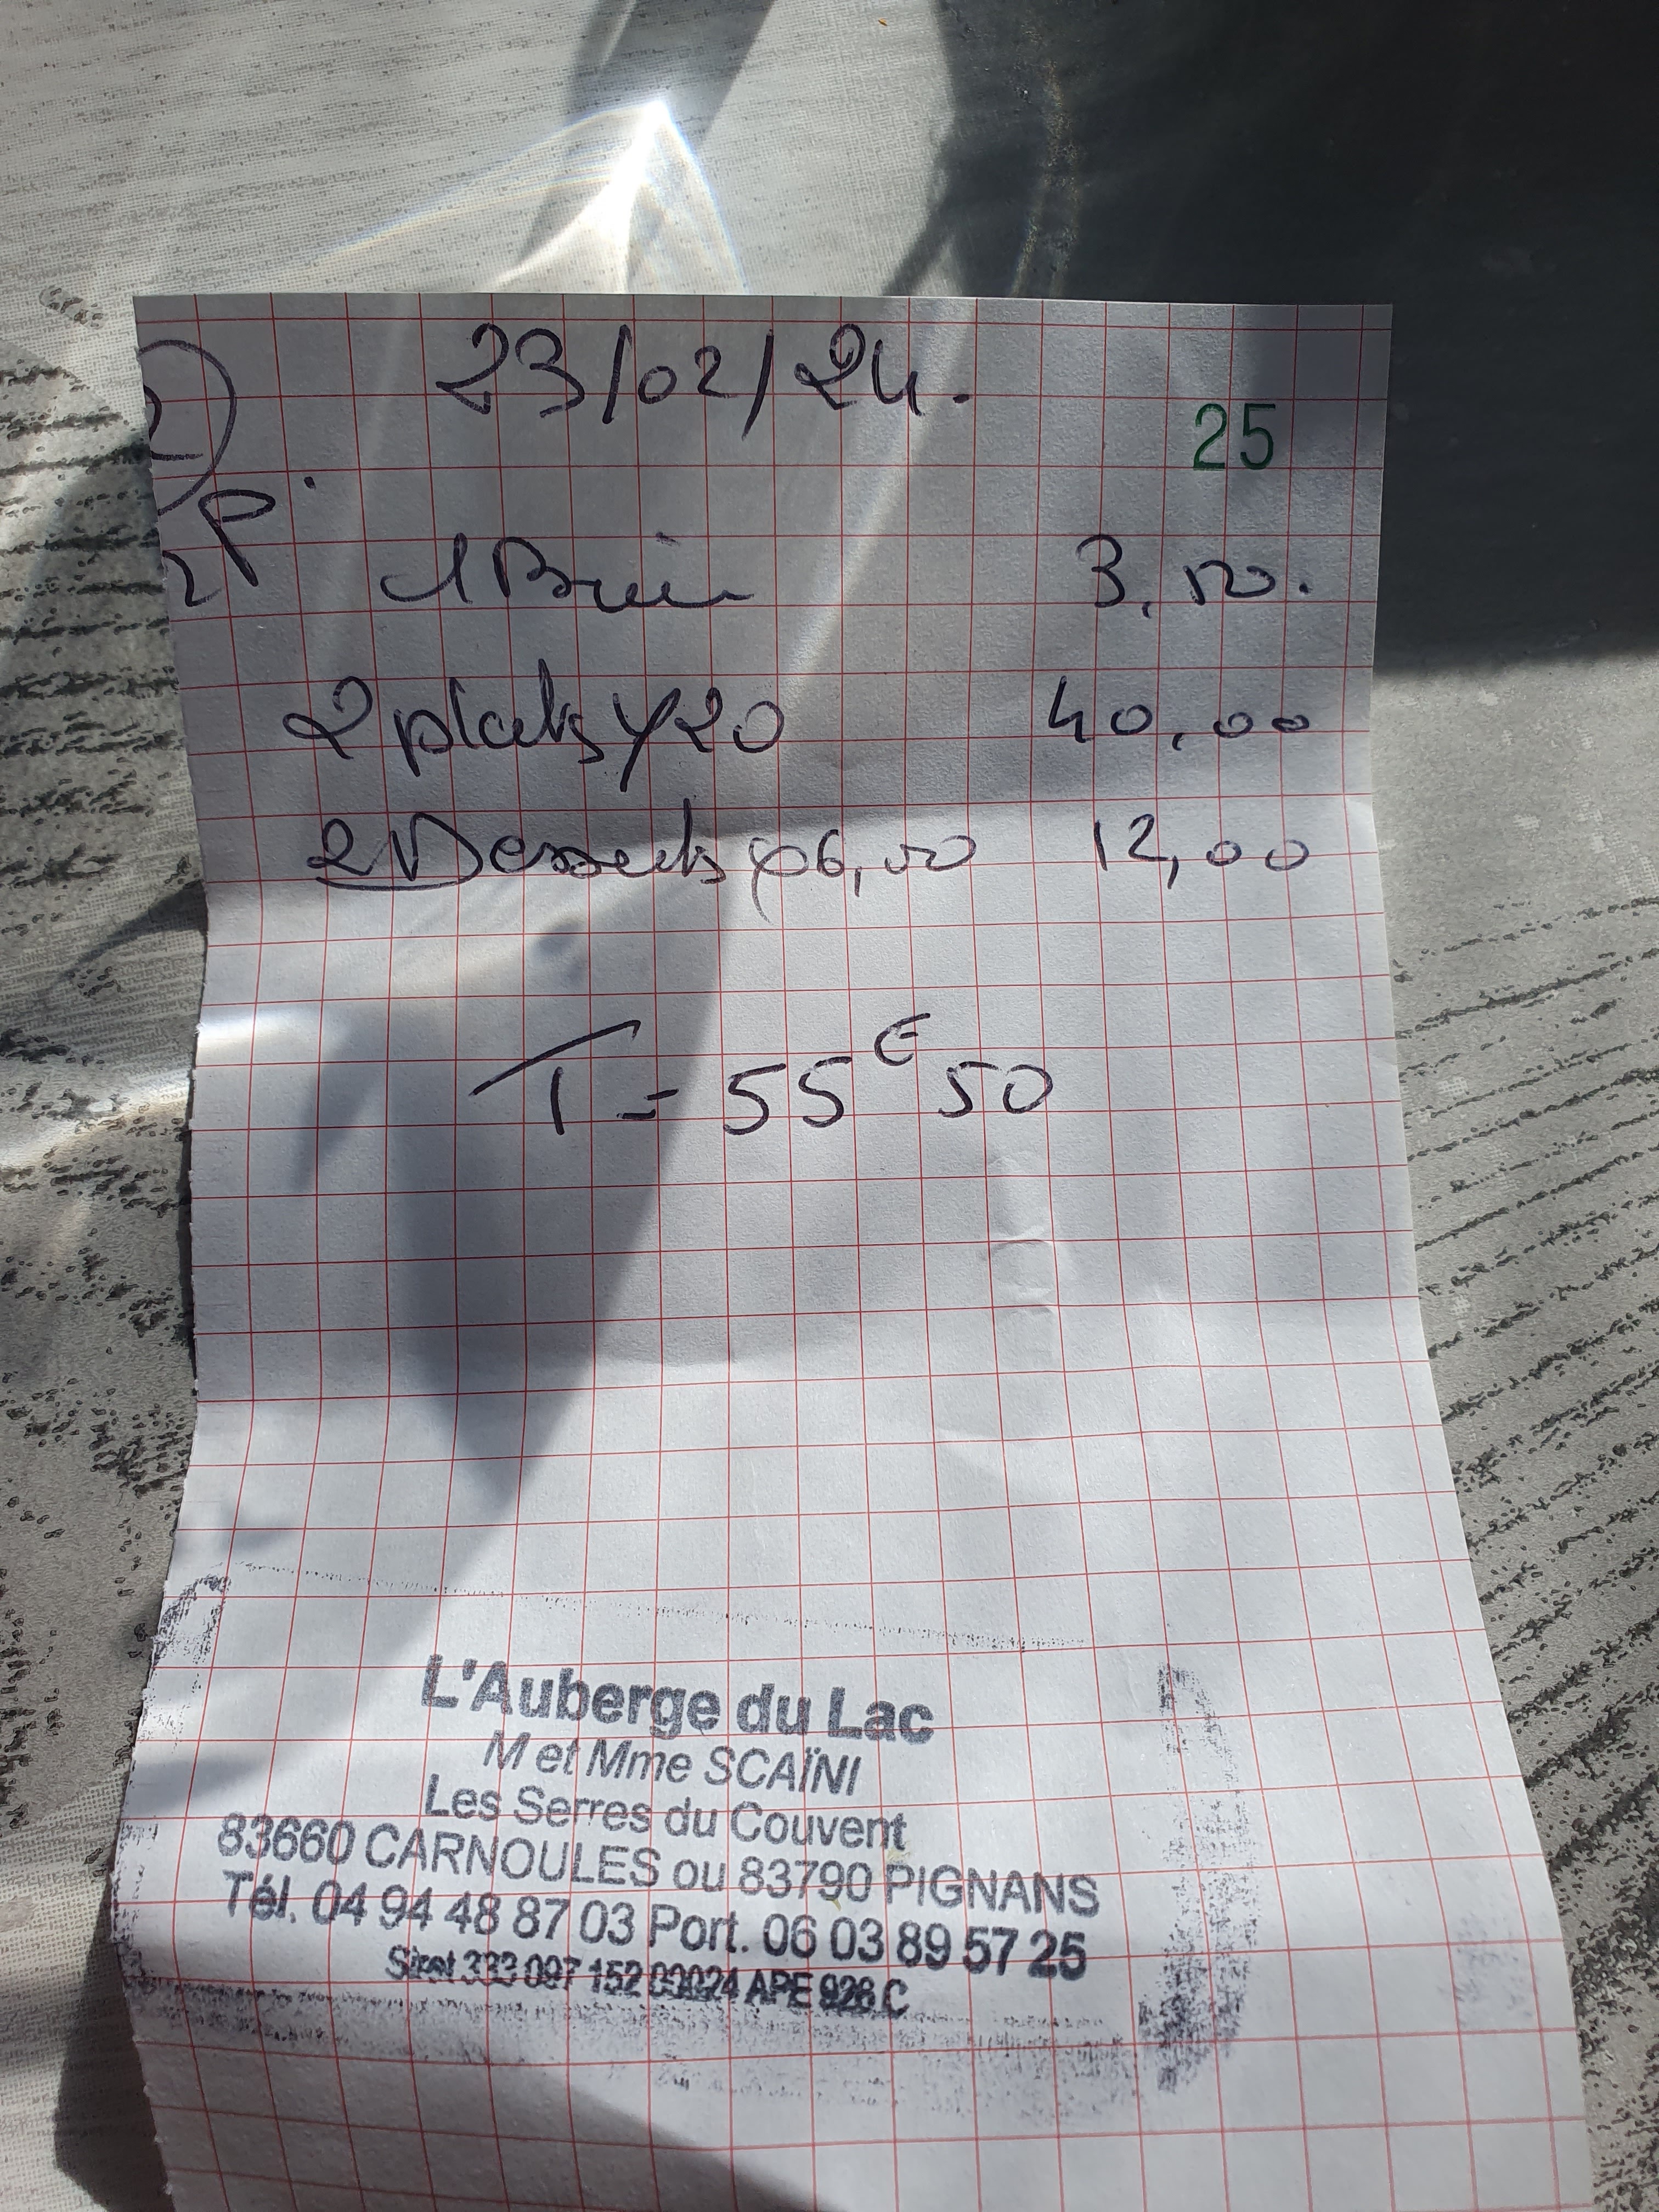 23/02/24.
25
2P.
3,50.
2 plats x 20 40,00
2 Desserts x 6,00 12,00
T = 55€50
L'Auberge du Lac
M et Mme SCAÏNI
Les Serres du Couvent
83660 CARNOULES ou 83790 PIGNANS
Tél. 04 94 48 87 03 Port. 06 03 89 57 25
Siret 333 097 152 00024 APE 926 C